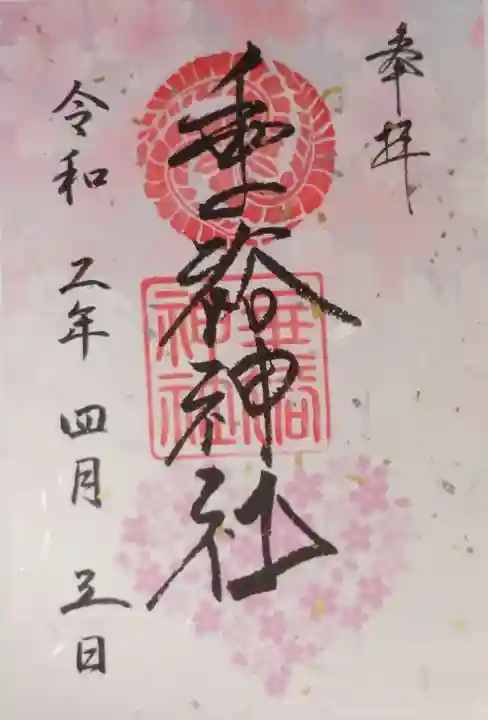 奉拝
垂裕神社
垂裕
神社
令和 五年 四月 五日